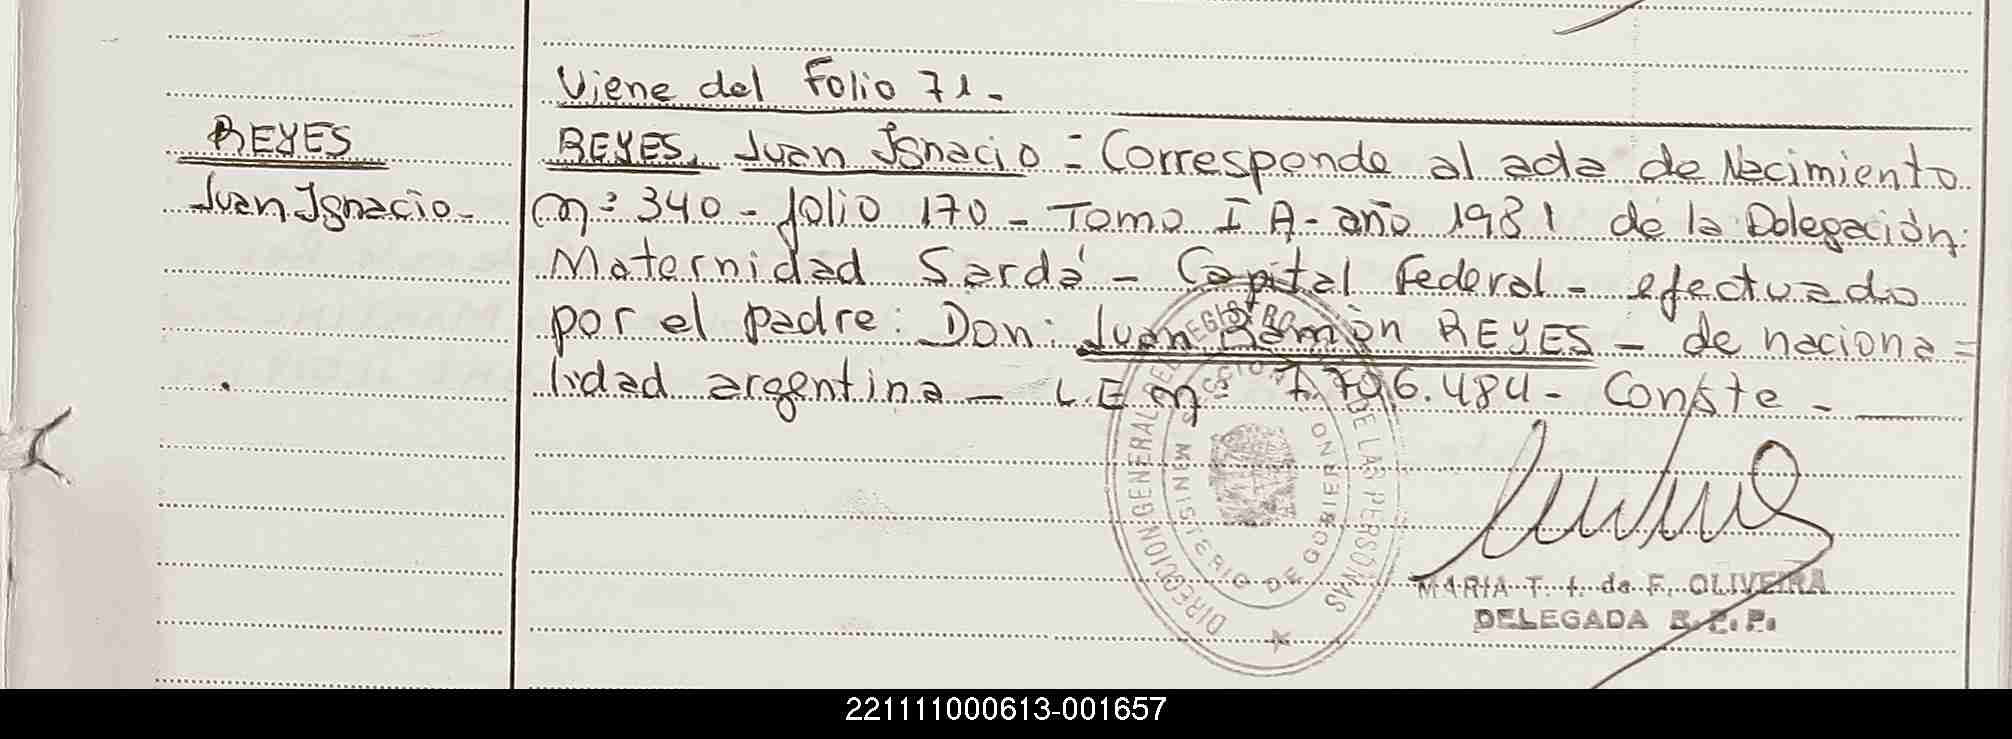 Viene del Folio 71.-
REYES
Juan Ignacio.-
REYES, Juan Ignacio = Corresponde al acta de Nacimiento
nº 340 - folio 170 - Tomo I A - año 1981 de la Delegación:
Maternidad Sardá - Capital Federal - efectuado
por el padre: Don: Juan Ramón REYES - de naciona=
lidad argentina - L.E nº 7.796.484 - Conste -
DIRECCION GENERAL DEL REGISTRO DE LAS PERSONAS
MINISTERIO DE GOBIERNO
MARIA T. de F. OLIVEIRA
DELEGADA R.C.P.
221111000613-001657